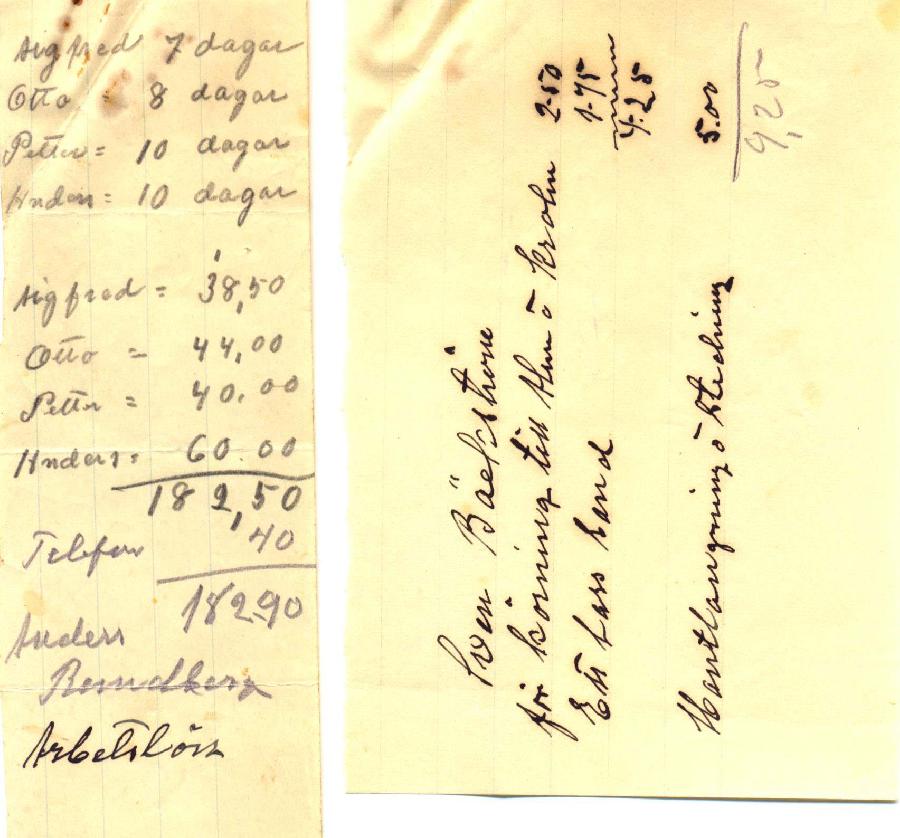 Sigfred 7 dagar
Otto = 8 dagar
Petter = 10 dagar
Anders = 10 dagar
Sigfred = 38,50
Otto = 44,00
Petter = 40.00
Anders = 60.00
182,50
Telefon 40
182.90
Anders
Arbetslön
Sven Bäckström
för körning till
2.50
Ett lass sand 1.75
4.25
Hantlangning o 5.00
9,25